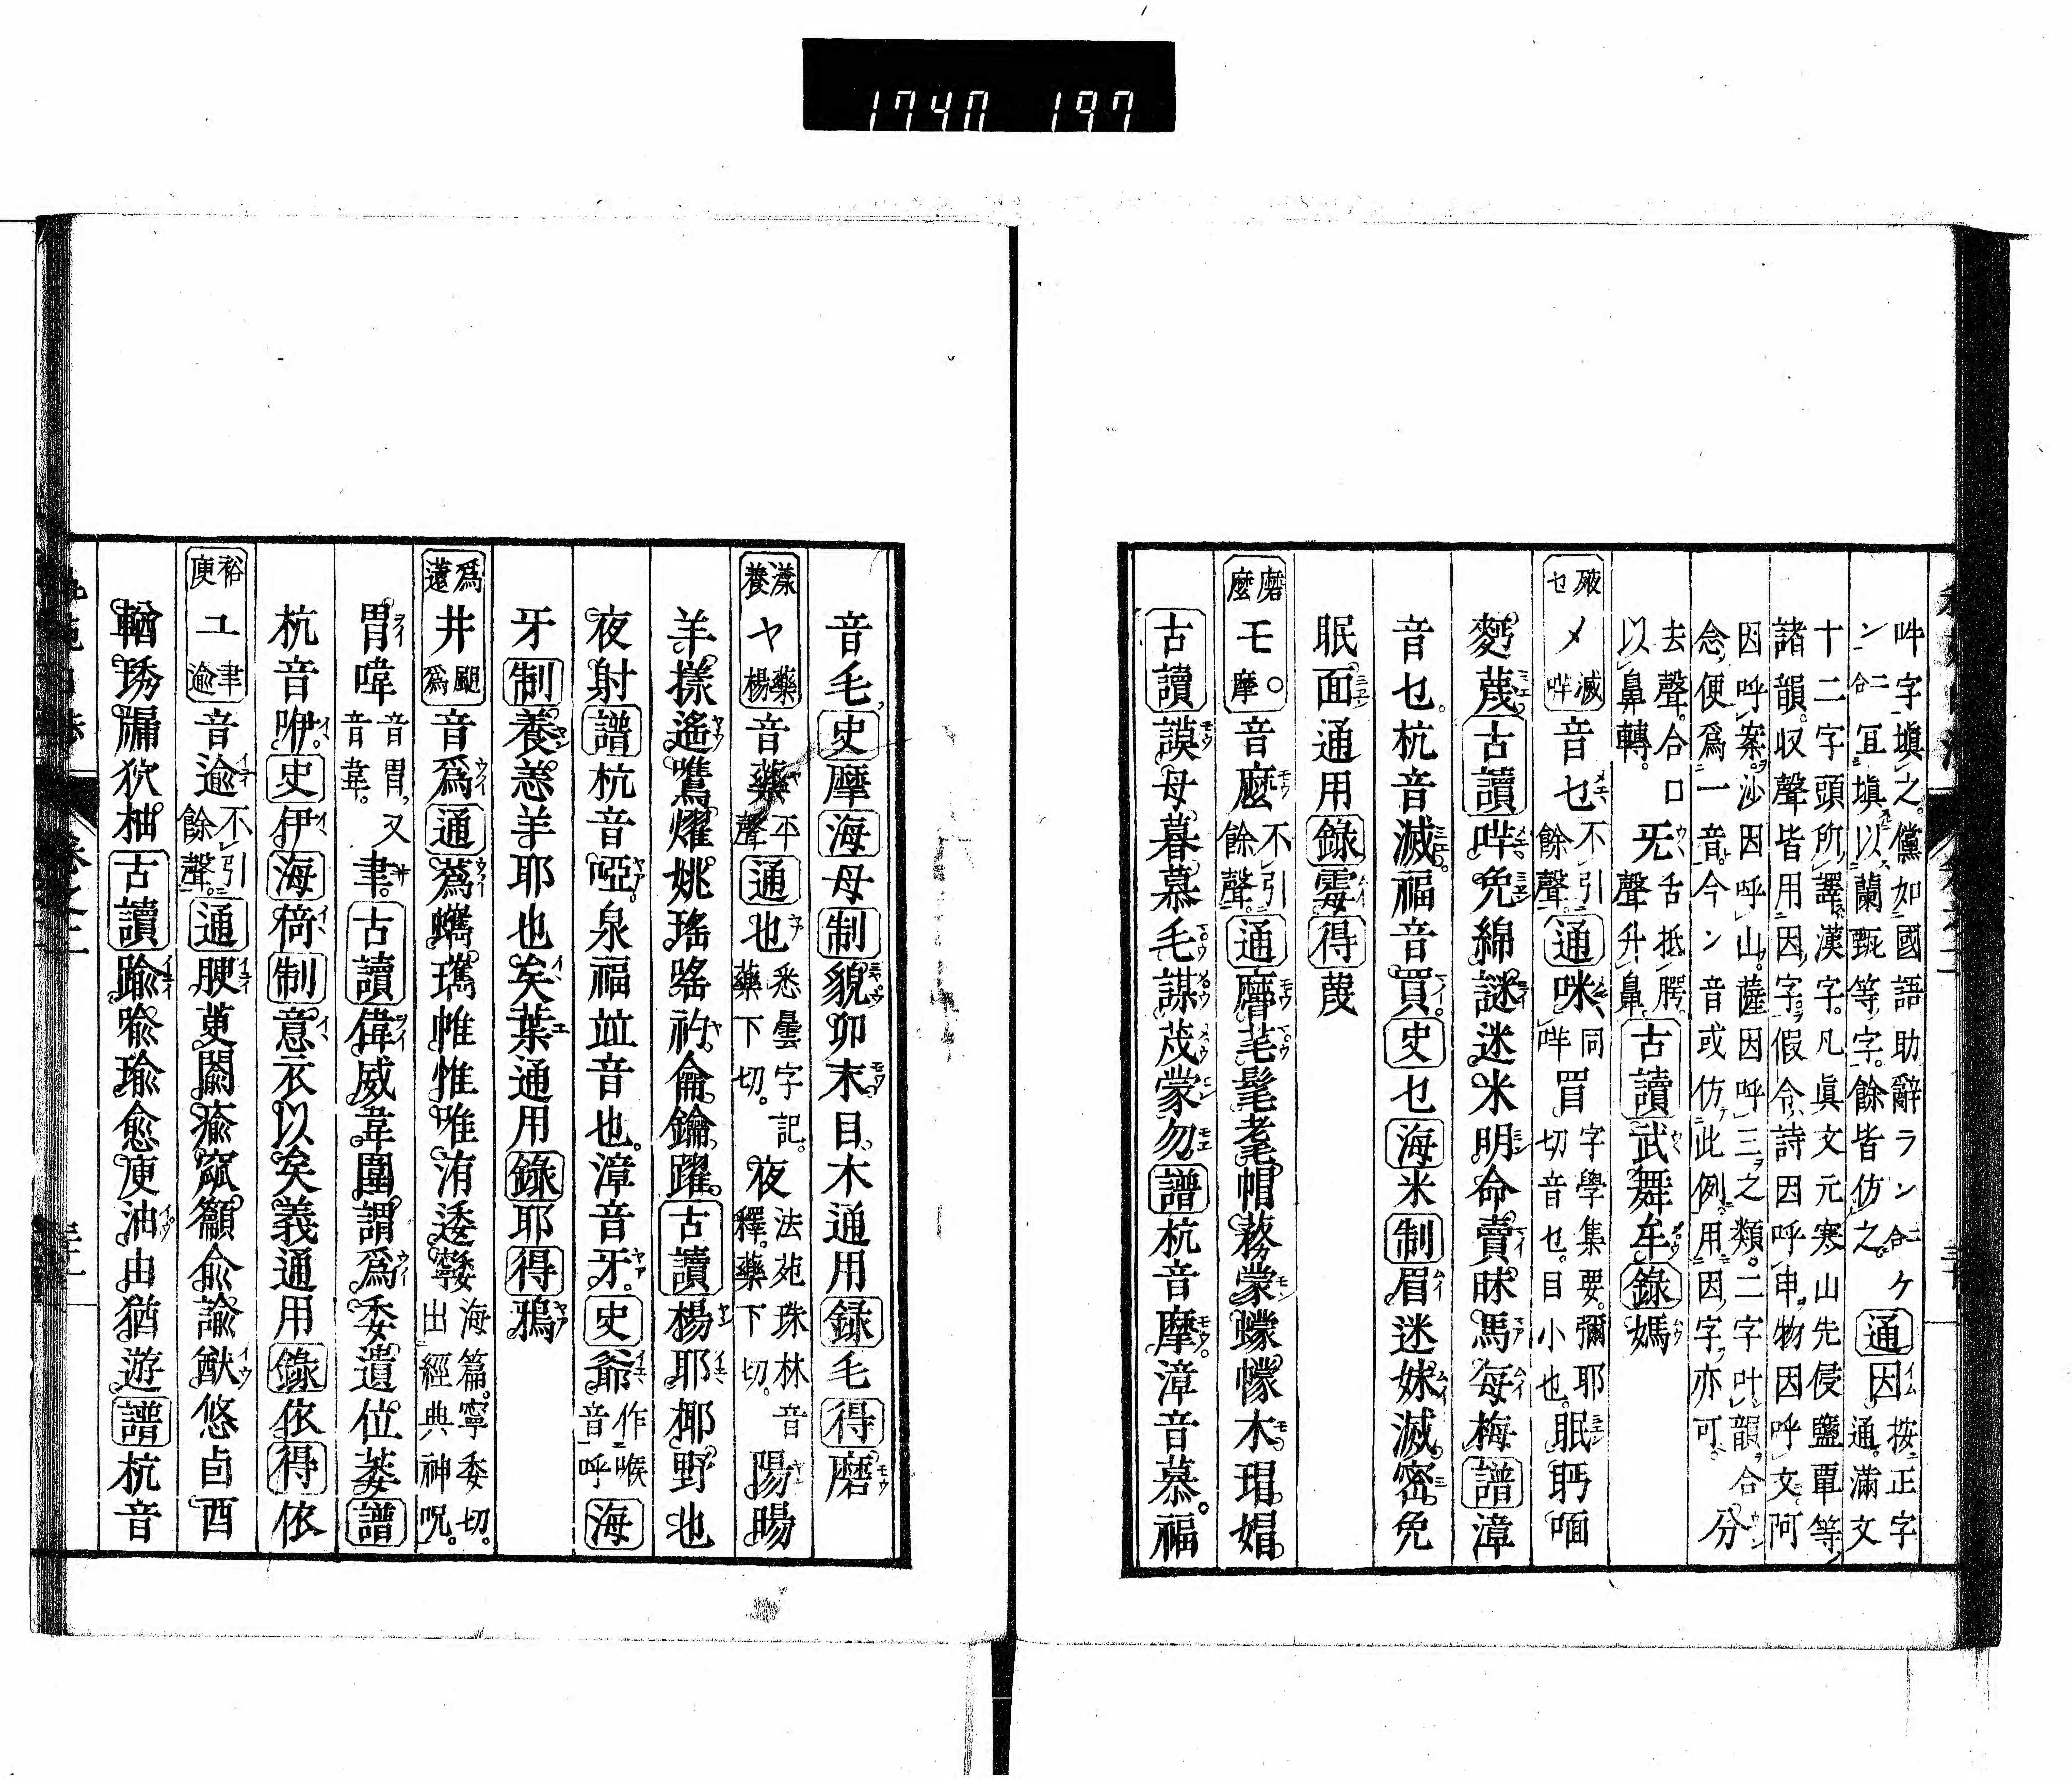 1740 197
吽字塡之儻如國語助辭ラン二合ケ通因按正字
ン二合冝塡以蘭甄等字餘皆仿之通滿文
十二字頭所譯漢字凡眞文元寒山先侵鹽覃等
諸韻収聲皆用因字假令詩因呼申物因呼文阿
因呼案沙因呼山薩因呼三之類二字叶韻合分
念便爲一音今ン音或仿此例用因字亦可
去聲合口
以鼻轉
旡舌抵腭
聲升鼻
古讀武舞牟錄媽
メ滅哶音乜不引餘聲通咪同哶冒字學集要彌耶切音乜目小也眠眄喕
麪蔑古讀哶免綿謎迷米明命賣眜馬每梅譜漳
音乜杭音滅福音買史乜海米制眉迷妹滅密免
眠面通用錄霉得蔑
磨麼モ摩音麼不引餘聲通麿芼髦耄帽蓩蒙蠓幪木瑁媢
古讀謨母暮慕毛謀茂蒙勿譜杭音摩漳音慕福
音毛史摩海母制貌卯末目木通用録毛得磨
漾養ヤ藥楊音藥平聲通也悉曇字記藥下切夜法苑珠林音釋藥下切陽暘
羊樣遙鷕燿姚瑤嗂礿龠鑰躍古讀楊耶椰野也
夜射譜杭音啞泉福竝音也漳音牙史爺作喉音呼海
牙制養恙羊耶也矣葉通用錄耶得鴉
爲薳井颶爲音爲通蔿蠵瓗帷惟唯洧逶寧委海篇寧委切出經典神呪
胃喡音胃又音韋聿古讀偉威韋圍謂爲委遺位萎譜
杭音咿史伊海倚制意衣以矣義通用錄依得依
裕庾ユ聿逾音逾不引餘聲通腴萸闟瘉窳籲兪諭猷悠卣酉
輶琇漏狖柚古讀踰喩瑜愈庾油由猶遊譜杭音